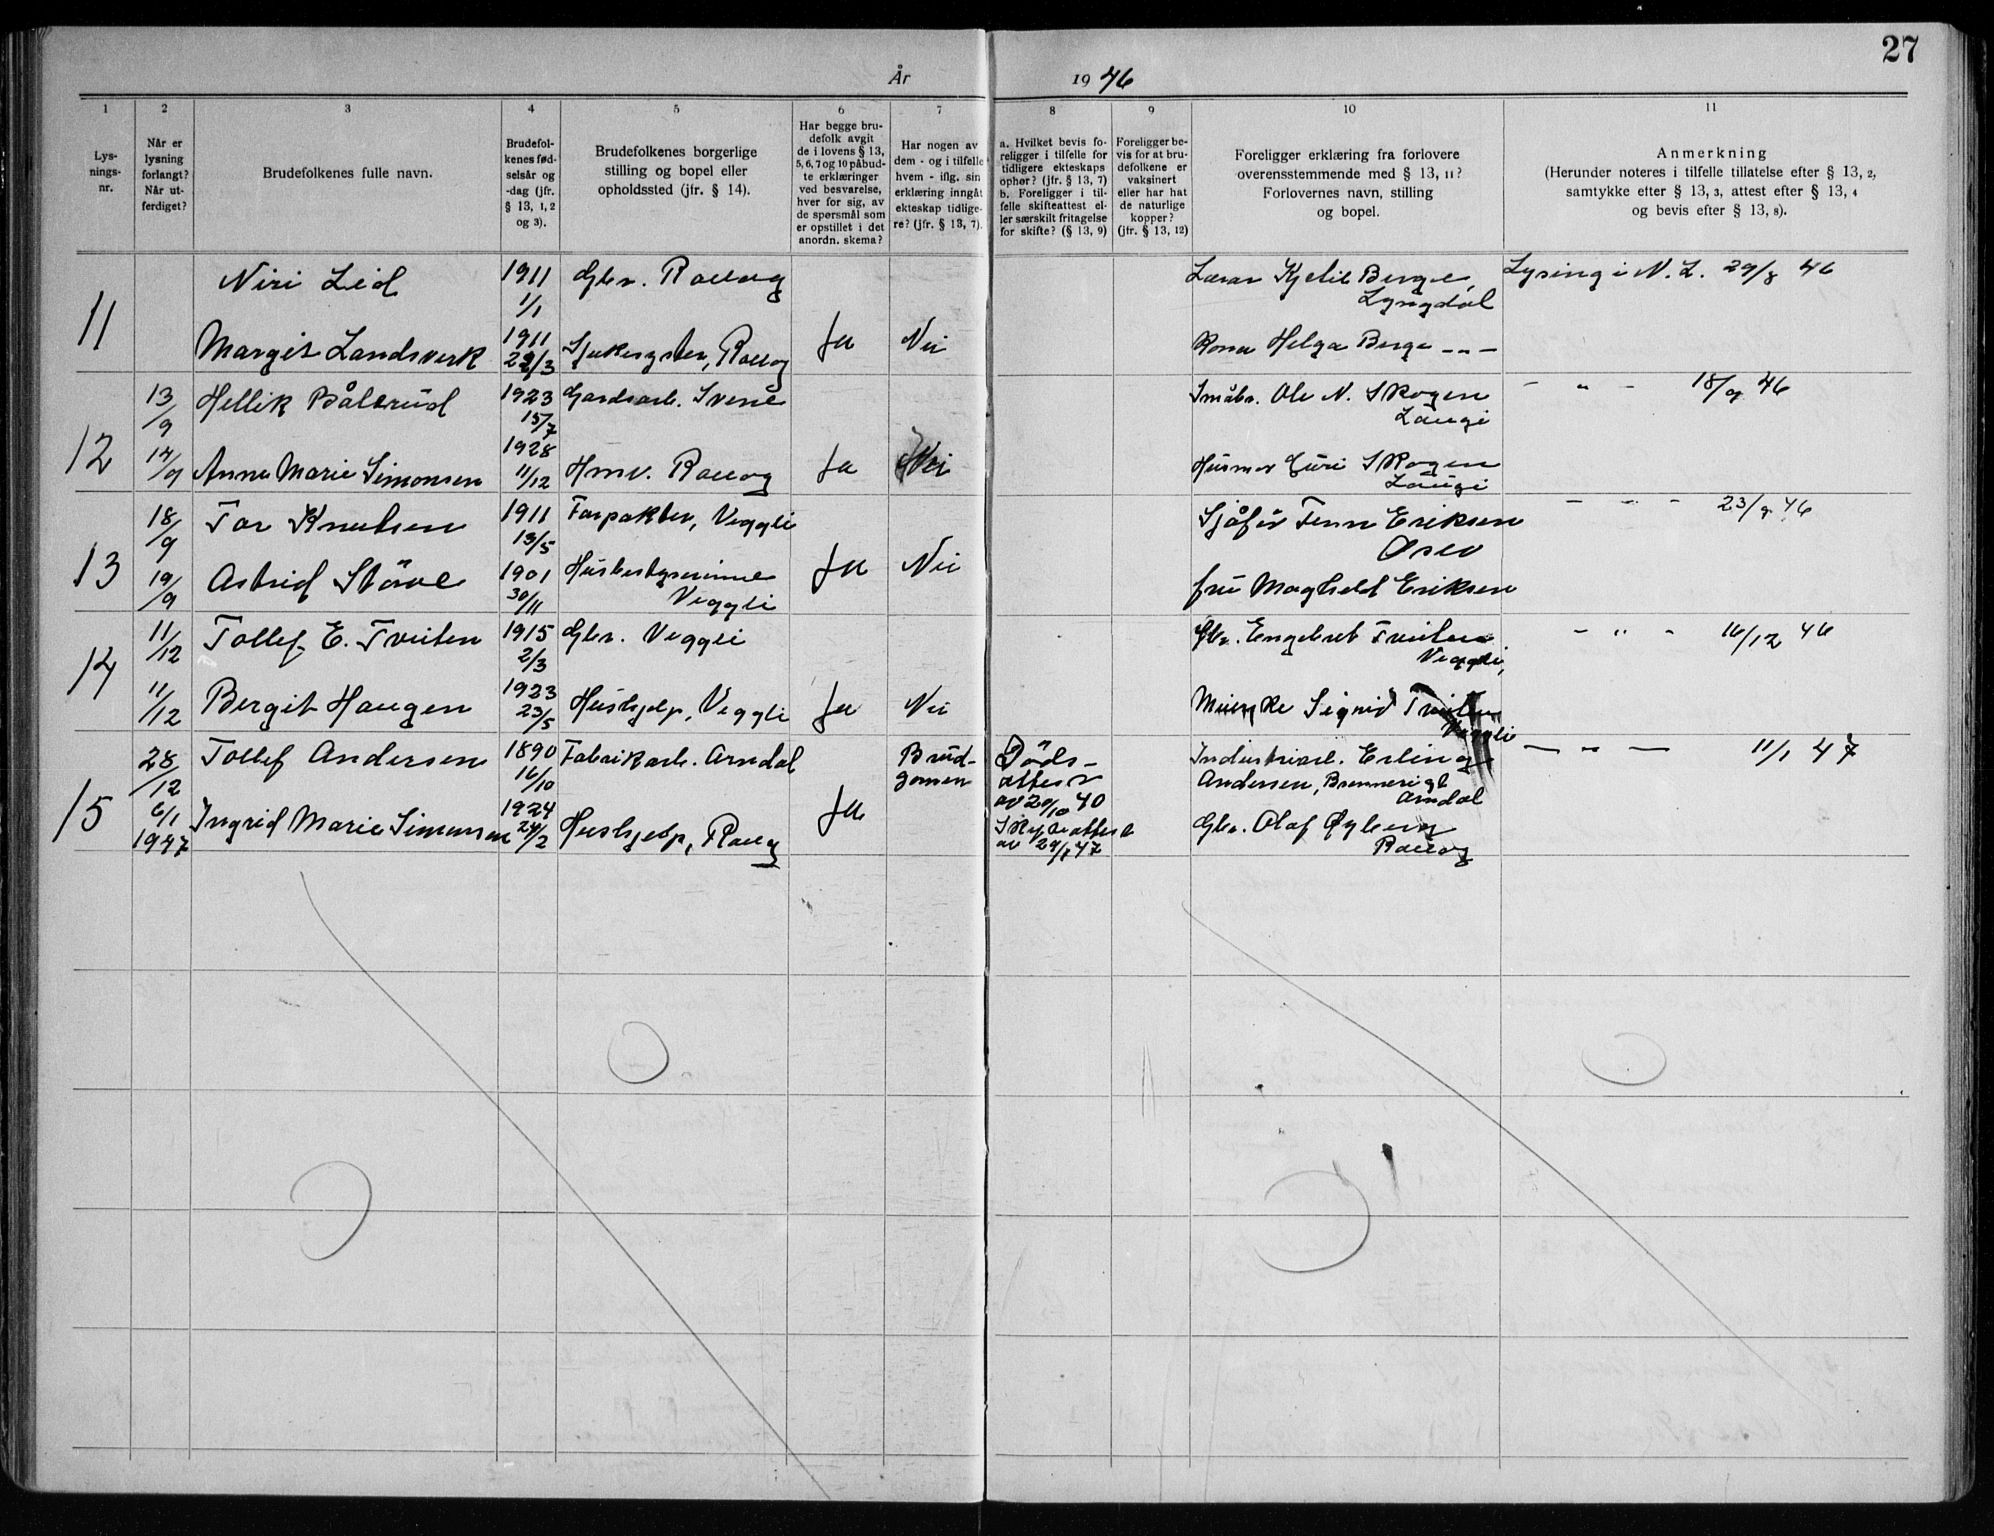 27
År 1946
1 2 3 4 5 6 7 8 9 10 11
Lys-
nings-
nr.
Når er
lysning
forlangt?
Når ut-
ferdiget?
Brudefolkenes fulle navn.
Brudefol-
kenes fød-
selsår og
-dag (jfr.
§ 13, 1, 2
og 3).
Brudefolkenes borgerlige
stilling og bopel eller
opholdssted (jfr. § 14).
Har begge bru-
defolk avgit
de i lovens § 13,
5, 6, 7 og 10 påbud-
te erklæringer
ved besvarelse,
hver for sig, av
de spørsmål som
er opstillet i det
anordn. skema?
Har nogen av
dem - og i tilfelle
hvem - iflg. sin
erklæring inngåt
ekteskap tidlige-
re? (jfr. § 13, 7).
a. Hvilket bevis fo-
religger i tilfelle for
tidligere ekteskaps
ophør? (jfr. § 13, 7)
b. Foreligger i til-
felle skifteattest el-
ler særskilt fritagelse
for skifte? (§ 13, 9)
Foreligger be-
vis for at bru-
defolkene er
vaksinert
eller har hat
de naturlige
kopper?
(jfr. § 13, 12)
Foreligger erklæring fra forlovere
overensstemmende med § 13, 11?
Forlovernes navn, stilling
og bopel.
Anmerkning
(Herunder noteres i tilfelle tillatelse efter § 13, 2,
samtykke efter § 13, 3, attest efter § 13, 4
og bevis efter § 13, 8).
11
Niri Leid
1911
1/1
Gbr. Rollag
Lærar Kjetil Berge,
Lyngdal
Lysing i N. L. 29/8 46
Margit Landsverk
1911
/3
Sjukesyster, Rollag
Ja
Nei
Kona Helga Berge - " -
12
13/9
Hellik Bålsrud
1923
15/7
Gardsarb. Svene
Småbr. Ole N. Skogen
Laugi
- " - 18/9 46
14/9
Anna Marie Simonsen
1928
11/12
Hmv. Rollag
Ja
Nei
Husmor Guri Skogen
Laugi
13
18/9
Tor Knutsen
1911
13/5
Forpakter, Veggli
Sjåfør Finn Eriksen
Oslo
- " - 23/9 46
19/9
Astrid Støve
1901
30/11
Husbestyrerinne
Veggli
Ja
Nei
fru Maghild Eriksen
14
11/12
Tollef E. Tveiten
1915
2/3
Gbr. Veggli
Gbr. Engebret Tveiten
Veggli,
- " - 16/12 46
11/12
Bergit Haugen
1923
23/5
Hushjelp, Veggli
Ja
Nei
Signid Tveiten
Veggli
15
28/12
Tollef Andersen
1890
16/10
Fabrikarb. Arndal
Brud-
gomen
Døds-
attest
av 20/10 40
Industriarb. Erling
Andersen, Brennerigt
Arndal
- " - 11/1 47
6/1
1947
Ingrid Marie Simonsen
1924
24/2
Hushjelp, Rollag
Ja
Skifteattest
av 47
Gbr. Olaf Øyberg
Rollag